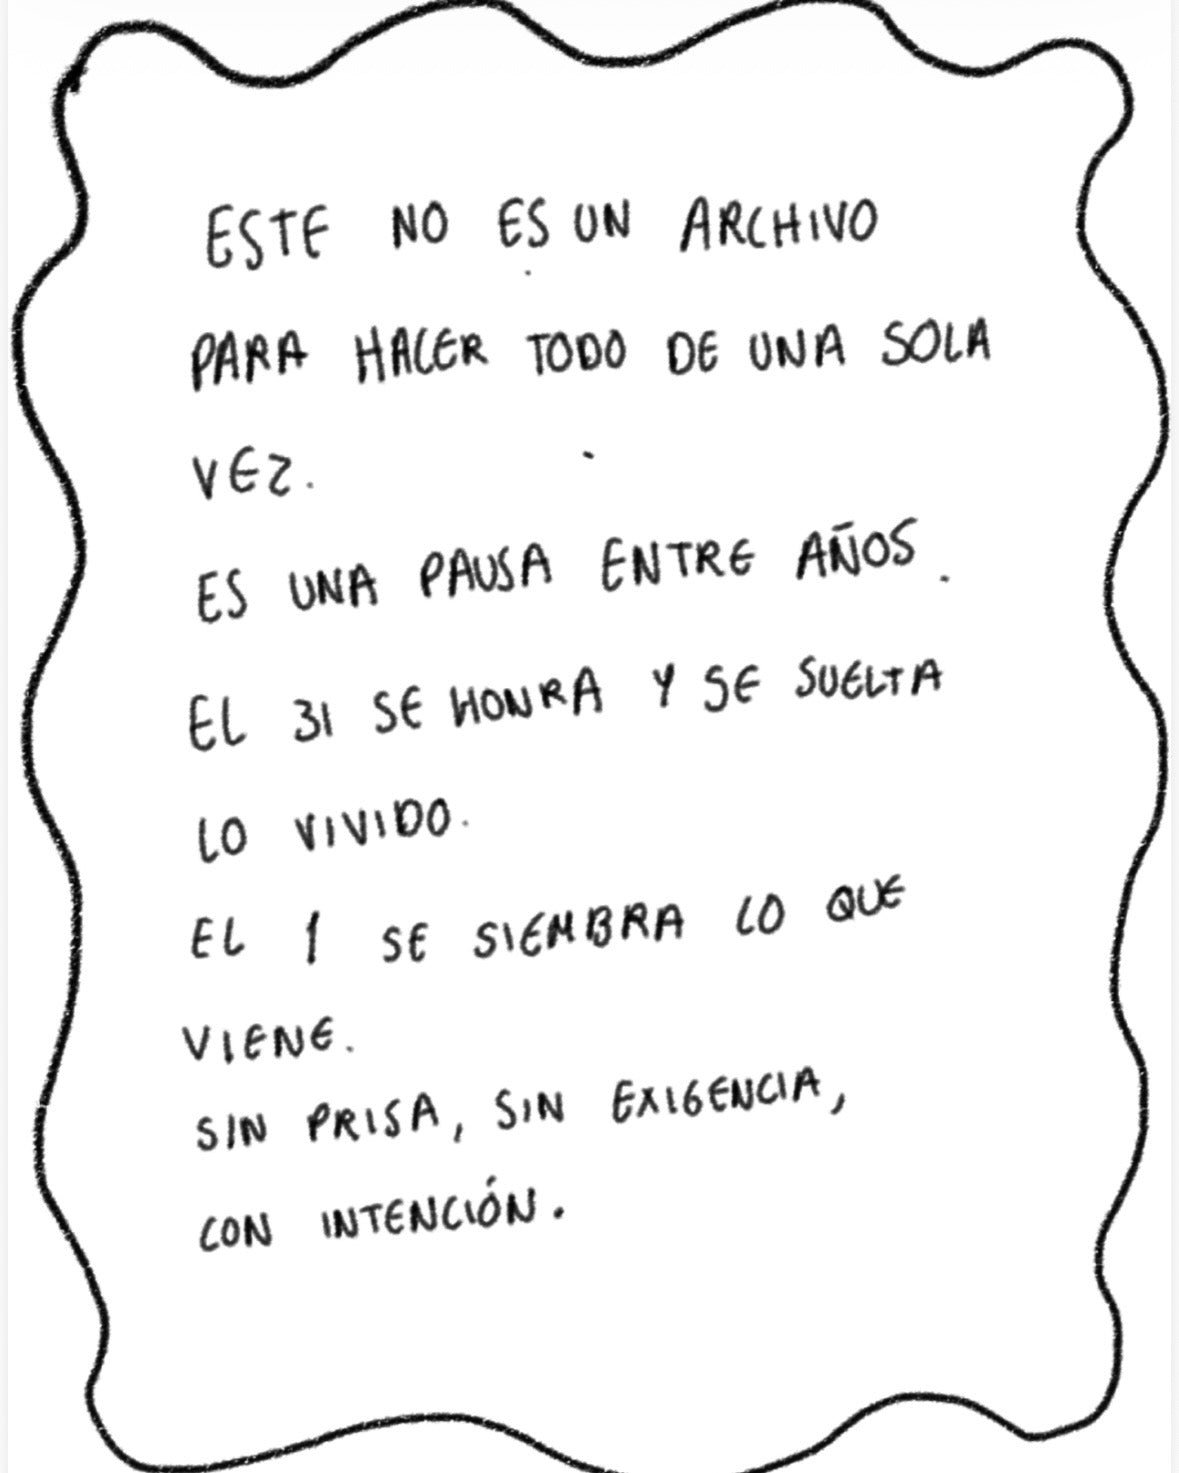 ESTE NO ES UN ARCHIVO
PARA HACER TODO DE UNA SOLA
VEZ.
ES UNA PAUSA ENTRE AÑOS.
EL 31 SE HONRA Y SE SUELTA
LO VIVIDO.
EL 1 SE SIEMBRA LO QUE
VIENE.
SIN PRISA, SIN EXIGENCIA,
CON INTENCIÓN.